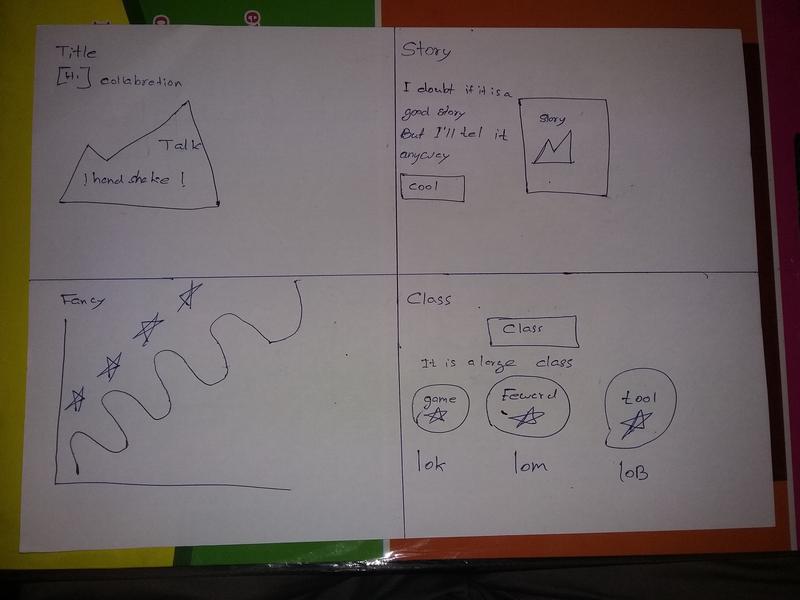 Title
[Hi] collabretion
Talk
! hand shake !
Story
I doubt if it is a
good story
But I'll tel it
anyway
cool
Story
Fancy
Class
Class
It is a large class
game
Feward
tool
10k
10m
10B